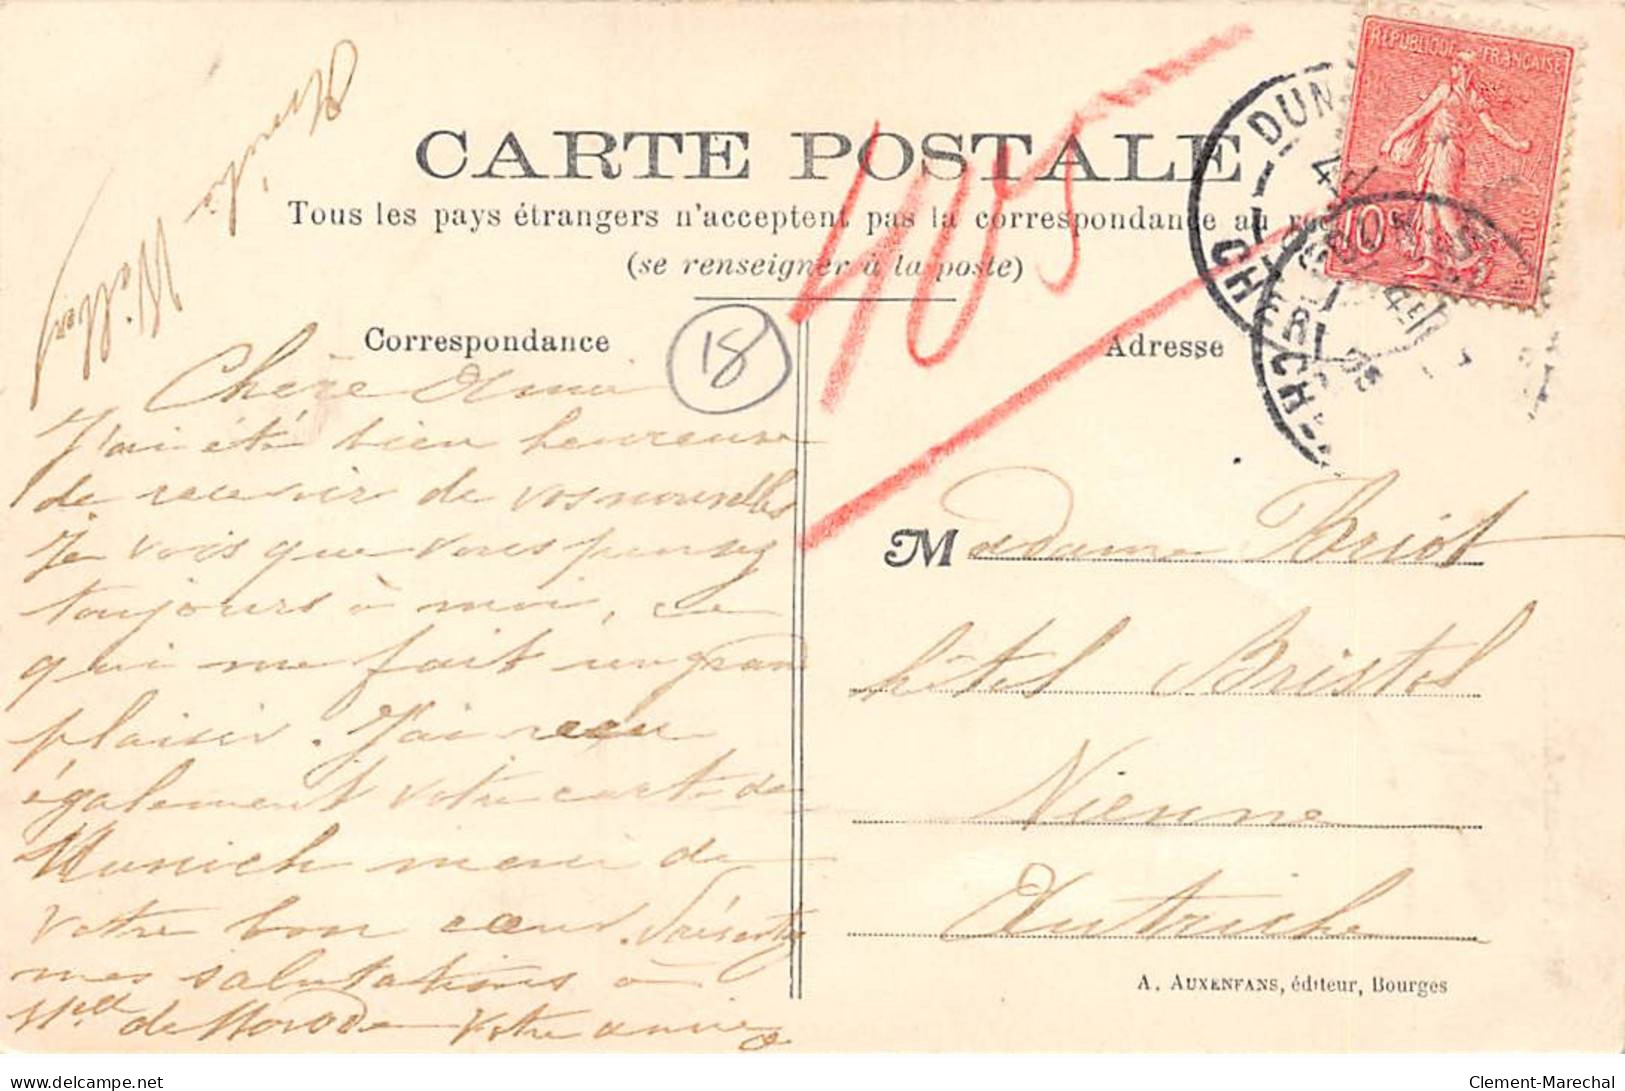 CARTE POSTALE
Tous les pays étrangers n'acceptent pas la correspondance au
(se renseigner à la poste)
Correspondance
Adresse
18
405
RÉPUBLIQUE FRANÇAISE
10
DUN
CHER
CHER
Chère Amie
J'ai été bien heureuse
de recevoir de vos nouvelles
Je vois que vous pensez
toujours à moi, ce
qui me fait un grand
plaisir. J'ai reçu
également votre carte de
Munich merci de
votre bon cœur. Présentez
mes salutations à
Mlle de Votre amie
M adame Briot
hôtel Bristol
Vienne
Autriche
A. AUXENFANS, éditeur, Bourges
www.delcampe.net
Clement-Marechal